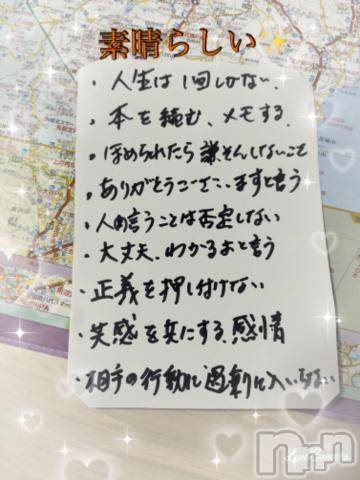 素晴らしい✨
・人生は1回しかない.
・本を読む、メモする.
・ほめられたら謙そんしないこと
・ありがとうございますと言う
・人の言うことは否定しない
・大丈夫.わかるよと言う
・正義を押し付けない
・共感を共にする感情
・相手の行動に過剰に入いらない